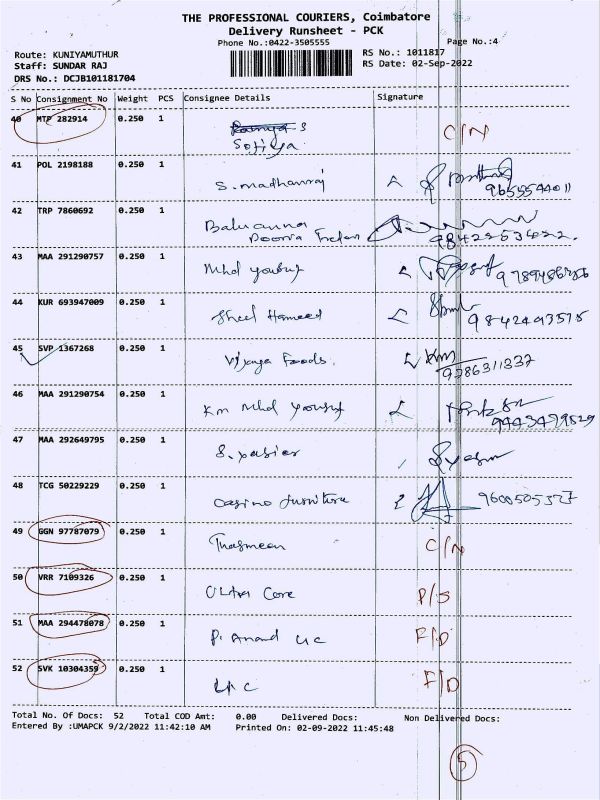 THE PROFESSIONAL COURIERS, Coimbatore
Delivery Runsheet - PCK
Phone No.:0422-3505555
Page No.:4
Route: KUNIYAMUTHUR
Staff: SUNDAR RAJ
DRS No.: DCJB101181704
RS No.: 1011817
RS Date: 02-Sep-2022
S No Consignment No Weight PCS Consignee Details Signature
40 MTP 282914 0.250 1 C/N
Sofiya
41 POL 2198188 0.250 1
S. madhanraj 9655544011
42 TRP 7860692 0.250 1
Balu anna 9842253422
43 MAA 291290757 0.250 1
Mhd yousuf
44 KUR 693947009 0.250 1
Sheel Hameed 9842493575
45 SVP 1367268 0.250 1
Vijaya Foods. 9786311337
46 MAA 291290754 0.250 1
Km Mhd yousuf
47 MAA 292649795 0.250 1
48 TCG 50229229 0.250 1
Casino furniture 9600505327
49 GGN 97787079 0.250 1
Thasmeen C/N
50 VRR 7109326 0.250 1
Ultra Core P/S
51 MAA 294478078 0.250 1
P. Anand LIC F/D
52 SVK 10304359 0.250 1
LIC F/D
Total No. Of Docs: 52 Total COD Amt: 0.00 Delivered Docs: Non Delivered Docs:
Entered By :UMAPCK 9/2/2022 11:42:10 AM Printed On: 02-09-2022 11:45:48
5